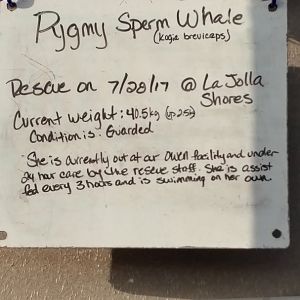 Pygmy Sperm Whale
(Kogia breviceps)
Rescue on 7/28/17 @ La Jolla
Shores
Current weight: 40.5kg (up 2.5k)
Condition is: Guarded
She is currently out at our OWCN facility and under
24 hour care by the rescue staff. She is assist
fed every 3 hours and is swimming on her own.